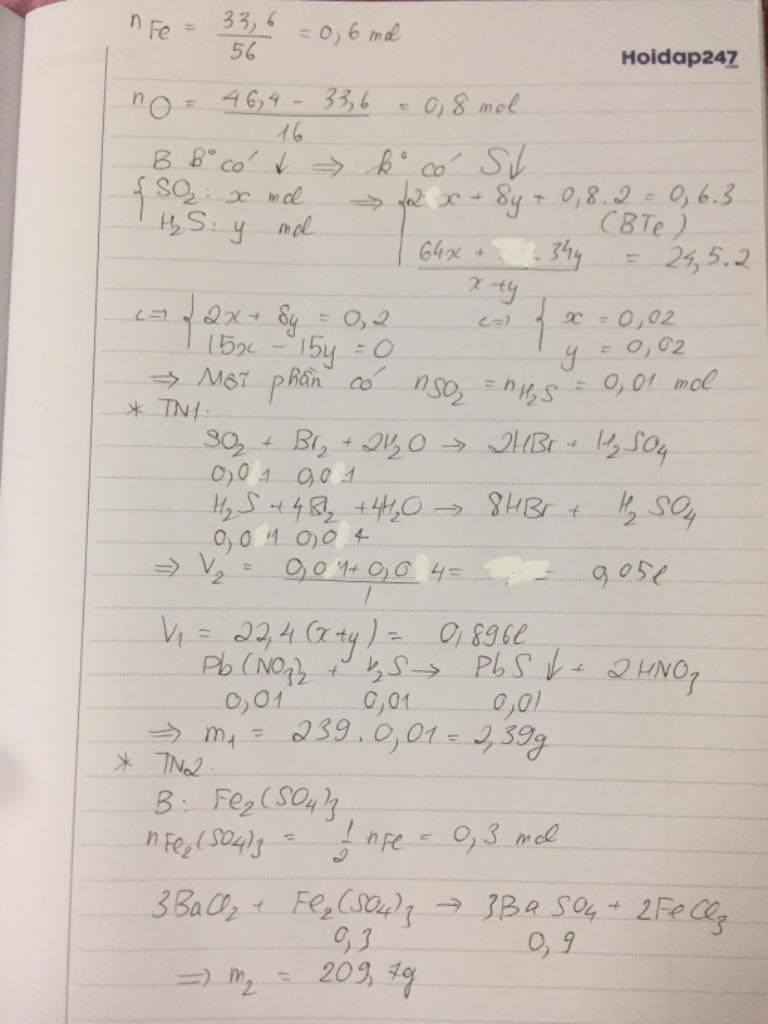 n Fe = 33,6 / 56 = 0,6 mol
Hoidap247
n O = 46,4 - 33,6 / 16 = 0,8 mol
B B° có ↓ => k° có S↓
{ SO₂: x mol => { 2 x + 8y + 0,8.2 = 0,6.3
H₂S: y mol (BTe)
64x + . 34y / x+y = 24,5.2
<=> { 2x + 8y = 0,2 <=> { x = 0,02
15x - 15y = 0 y = 0,02
=> Mỗi phần có nSO₂ = nH₂S = 0,01 mol
* TN1:
SO₂ + Br₂ + 2H₂O → 2HBr + H₂SO₄
0,01 0,01
H₂S + 4Br₂ + 4H₂O → 8HBr + H₂SO₄
0,01 0,04
=> V₂ = 0,01 + 0,04 / 1 = = 0,05l
V₁ = 22,4 (x+y) = 0,896l
Pb(NO₃)₂ + H₂S → PbS ↓ + 2HNO₃
0,01 0,01 0,01
=> m₁ = 239. 0,01 = 2,39g
* TN2:
B: Fe₂(SO₄)₃
nFe₂(SO₄)₃ = 1/2 nFe = 0,3 mol
3BaCl₂ + Fe₂(SO₄)₃ → 3BaSO₄ + 2FeCl₃
0,3 0,9
=> m₂ = 209,7g